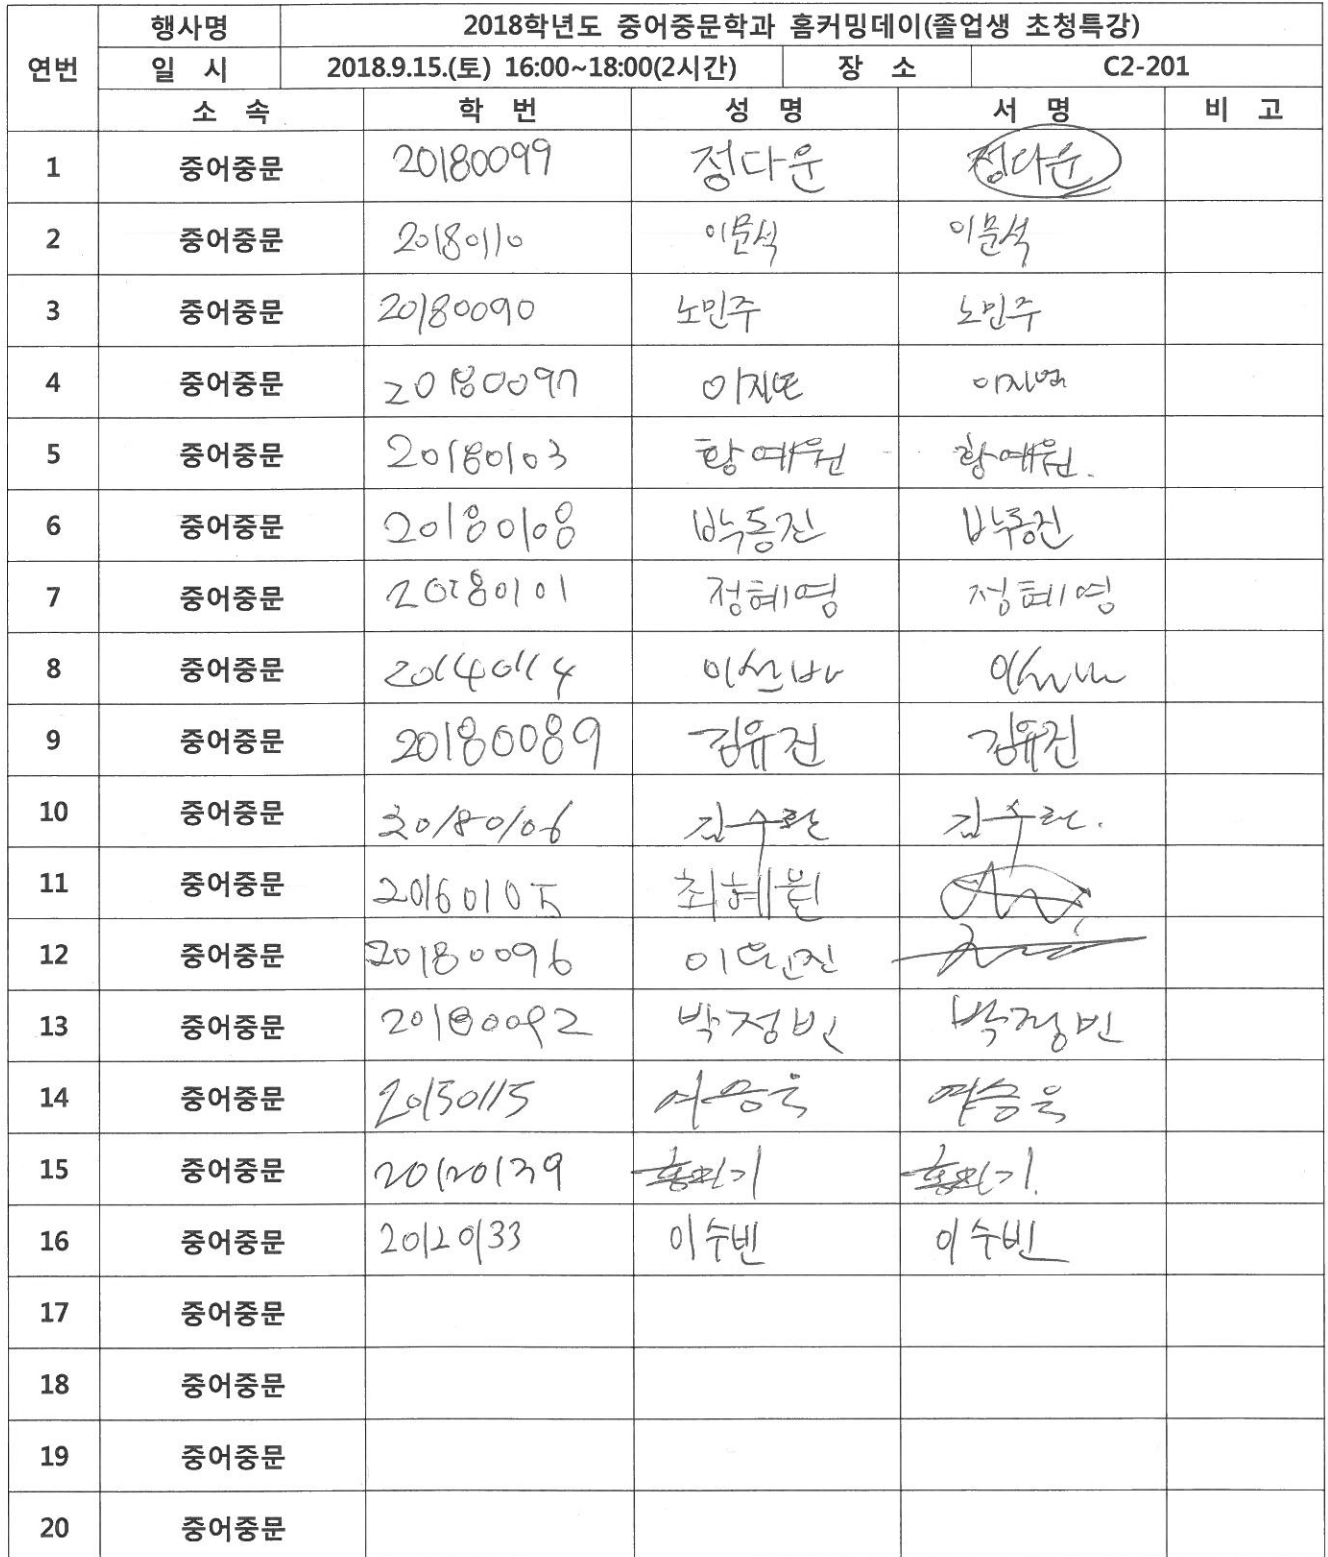 행사명 2018학년도 중어중문학과 홈커밍데이(졸업생 초청특강)
연번 일 시 2018.9.15.(토) 16:00~18:00(2시간) 장 소 C2-201
소 속 학 번 성 명 서 명 비 고
1 중어중문 20180099 정다운 정다운
2 중어중문 20180110 이문석 이문석
3 중어중문 20180090 노민주 노민주
4 중어중문 20180097
5 중어중문 20180103 황예원 황예원.
6 중어중문 20180108 박동진 박동진
7 중어중문 20180101 정혜영 정혜영
8 중어중문 20140114
9 중어중문 20180089 김유진 김유진
10 중어중문 20180106 김수란 김수란.
11 중어중문 20160105 최혜원
12 중어중문 20180096
13 중어중문 20180092 박정빈 박정빈
14 중어중문 20150115
15 중어중문 20120139 홍민기 홍민기.
16 중어중문 20120133 이수빈 이수빈
17 중어중문
18 중어중문
19 중어중문
20 중어중문